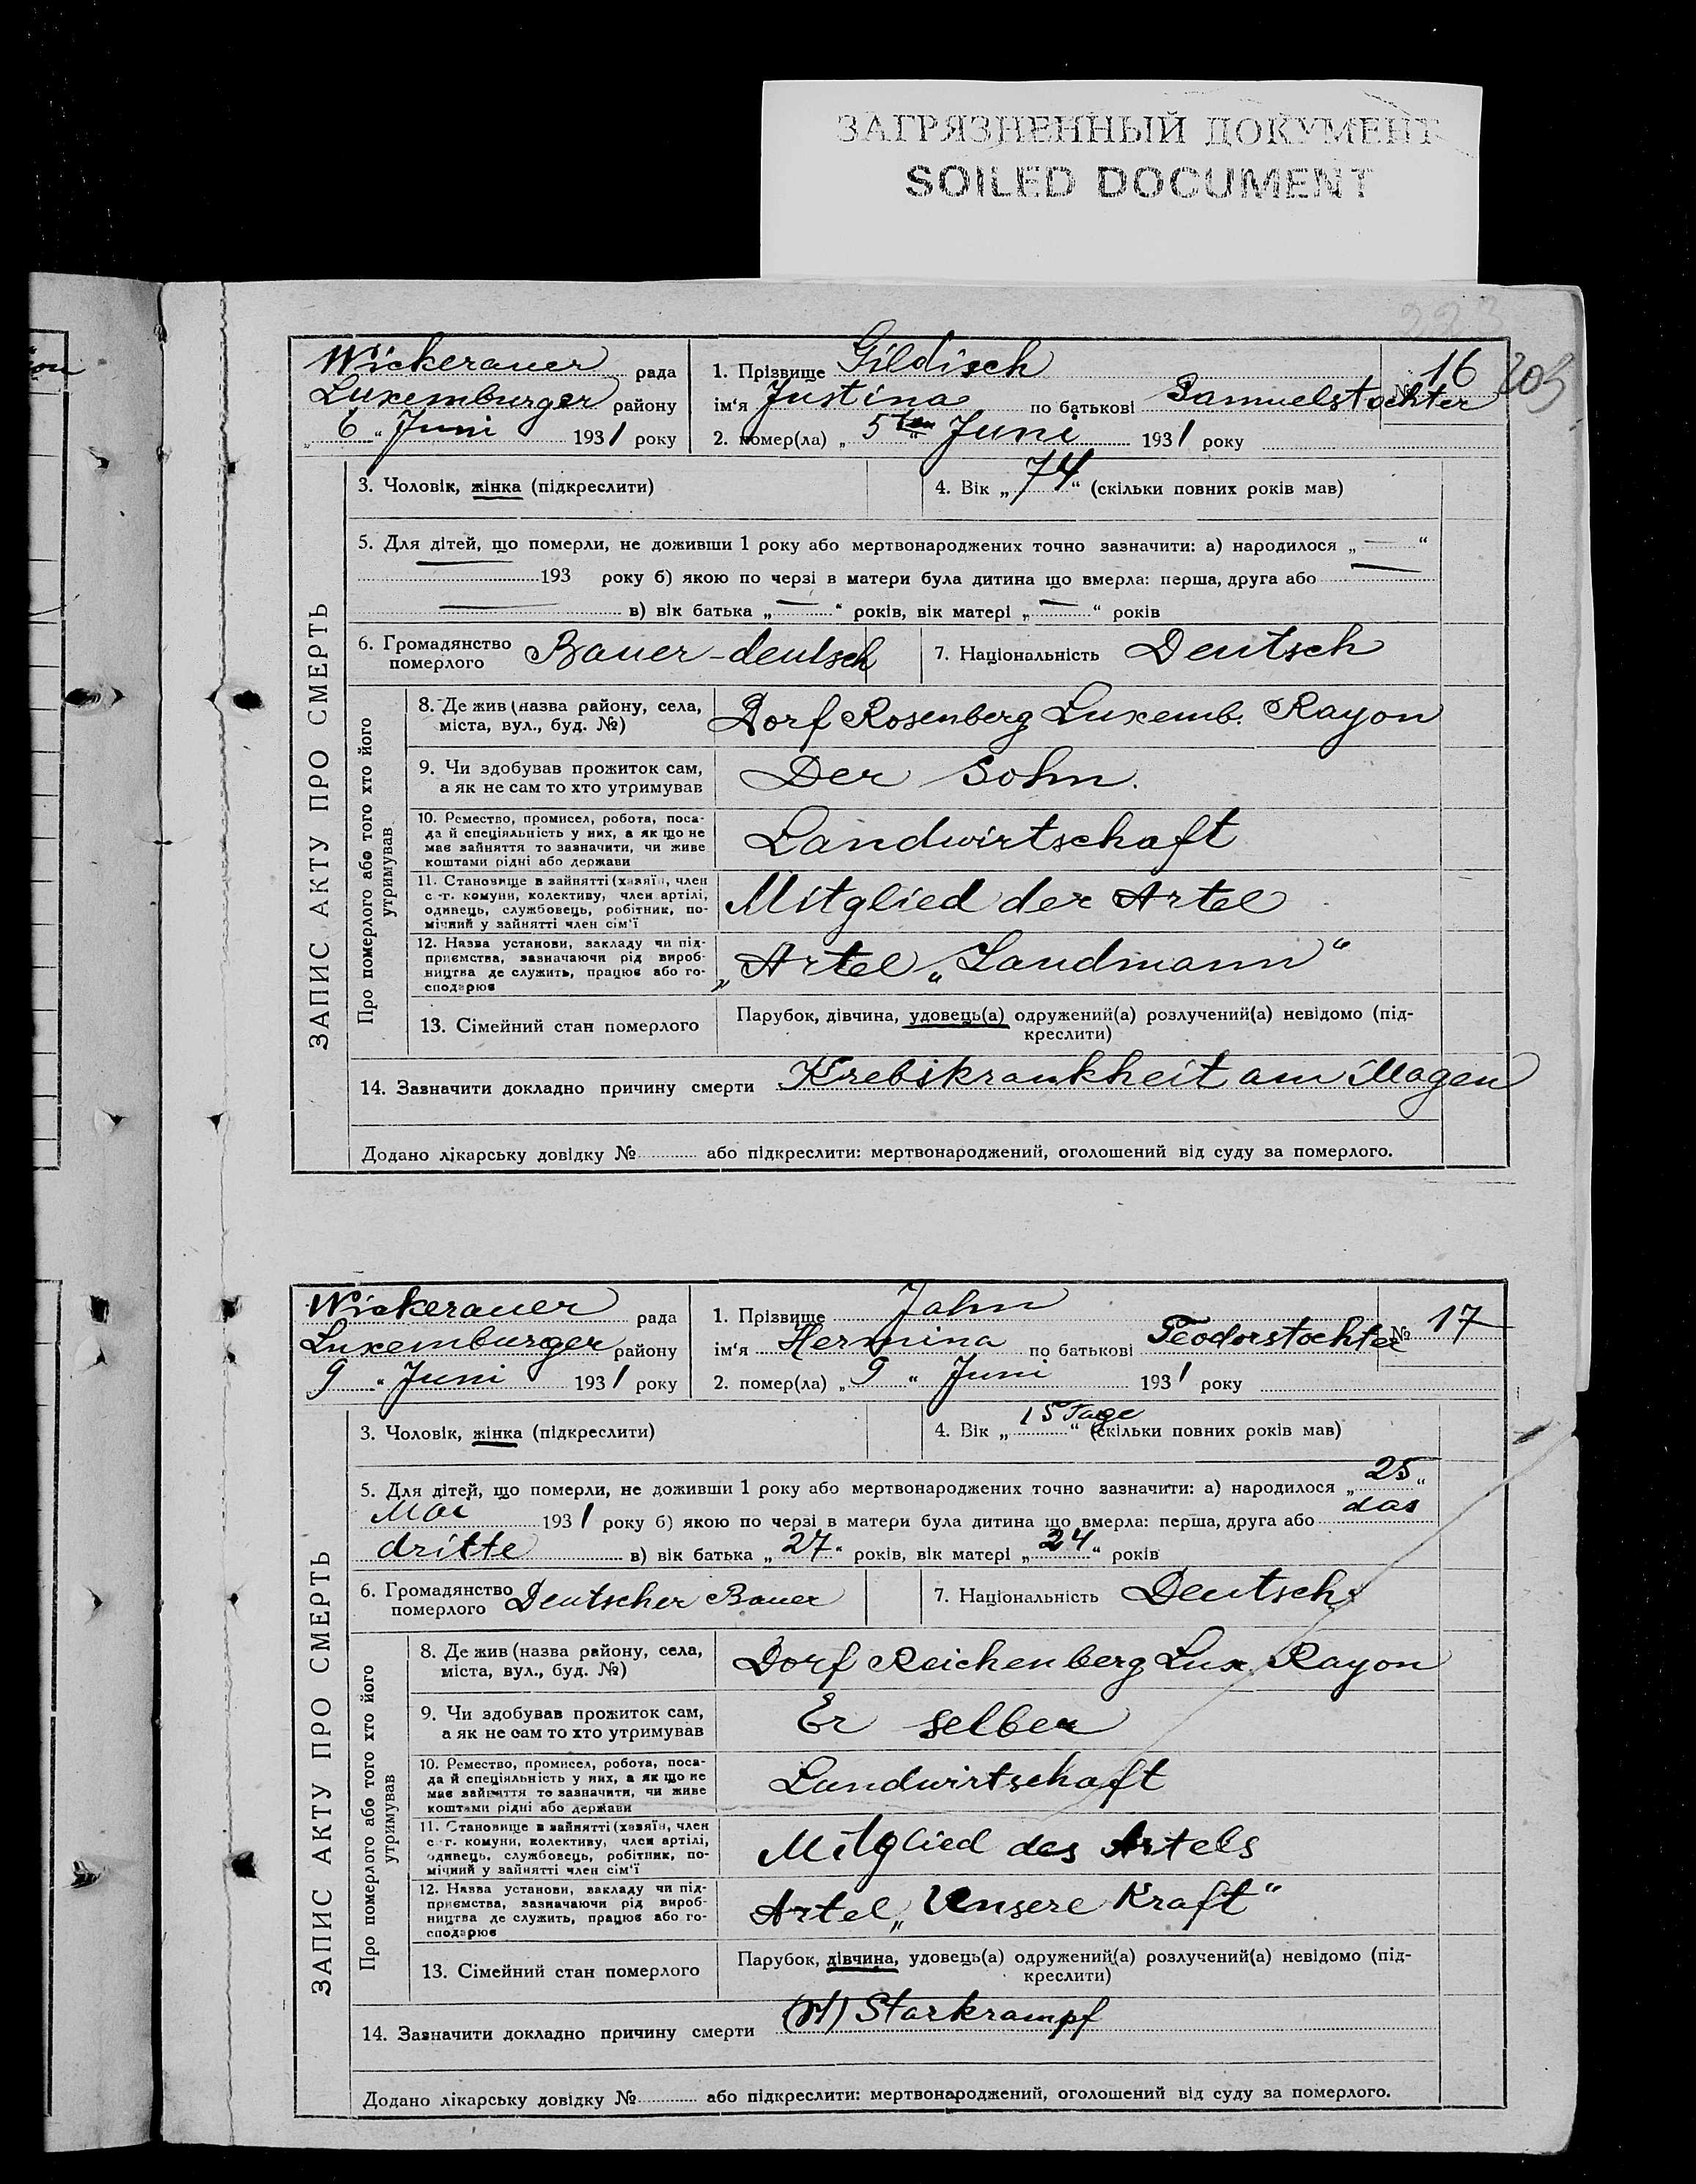 ЗАГРЯЗНЕННЫЙ ДОКУМЕНТ
SOILED DOCUMENT
223
205
Wickerauer рада
Luxemburger району
„ 6 “ Juni 1931 року
1. Прізвище Gildisch
№ 16
ім‘я Justina по батькові Samuelstochter
2. помер(ла) „ 5ten “ Juni 1931 року
ЗАПИС АКТУ ПРО СМЕРТЬ
3. Чоловік, жінка (підкреслити)
4. Вік „ 74 “ (скільки повних років мав)
5. Для дітей, що померли, не доживши 1 року або мертвонароджених точно зазначити: а) народилося „ — “
— 193 року б) якою по черзі в матери була дитина що вмерла: перша, друга або —
— в) вік батька „ — “ років, вік матері „ — “ років
6. Громадянство померлого Bauer-deutsch
7. Національність Deutsch
Про померлого або того хто його утримував
8. Де жив (назва району, села,
міста, вул., буд. №)
Dorf Rosenberg Luxemb. Rayon
9. Чи здобував прожиток сам,
а як не сам то хто утримував
Der Sohn.
10. Ремество, промисел, робота, поса-
да й спеціяльність у них, а як що не
має зайняття то зазначити, чи живе
коштами рідні або держави
Landwirtschaft
11. Становище в зайнятті (хазяїн, член
с.-г. комуни, колективу, член артілі,
одинець, службовець, робітник, по-
мічний у зайнятті член сім‘ї
Mitglied der Artel
12. Назва установи, закладу чи під-
приємства, зазначаючи рід вироб-
ництва де служить, працює або го-
сподарює
„ Artel „Landmann“
13. Сімейний стан померлого
Парубок, дівчина, удовець(а) одружений(а) розлучений(а) невідомо (під-
креслити)
14. Зазначити докладно причину смерти Krebskrankheit am Magen
Додано лікарську довідку № або підкреслити: мертвонароджений, оголошений від суду за померлого.
Wickerauer рада
Luxemburger району
9 “ Juni 1931 року
1. Прізвище Jahn
№ 17
ім‘я Hermina по батькові Teodorstochter
2. помер(ла) „ 9 “ Juni 1931 року
ЗАПИС АКТУ ПРО СМЕРТЬ
3. Чоловік, жінка (підкреслити)
4. Вік „ 15 Tage “ (скільки повних років мав)
5. Для дітей, що померли, не доживши 1 року або мертвонароджених точно зазначити: а) народилося „ 25 “
Mai 1931 року б) якою по черзі в матери була дитина що вмерла: перша, друга або das
dritte в) вік батька „ 27 “ років, вік матері „ 24 “ років
6. Громадянство померлого Deutscher Bauer
7. Національність Deutsch
Про померлого або того хто його утримував
8. Де жив (назва району, села,
міста, вул., буд. №)
Dorf Reichenberg Lux. Rayon
9. Чи здобував прожиток сам,
а як не сам то хто утримував
Er selber
10. Ремество, промисел, робота, поса-
да й спеціяльність у них, а як що не
має зайняття то зазначити, чи живе
коштами рідні або держави
Landwirtschaft
11. Становище в зайнятті (хазяїн, член
с.-г. комуни, колективу, член артілі,
одинець, службовець, робітник, по-
мічний у зайнятті член сім‘ї
Mitglied des Artels
12. Назва установи, закладу чи під-
приємства, зазначаючи рід вироб-
ництва де служить, працює або го-
сподарює
Artel „Unsere Kraft“
13. Сімейний стан померлого
Парубок, дівчина, удовець(а) одружений(а) розлучений(а) невідомо (під-
креслити)
14. Зазначити докладно причину смерти Starkrampf
Додано лікарську довідку № або підкреслити: мертвонароджений, оголошений від суду за померлого.